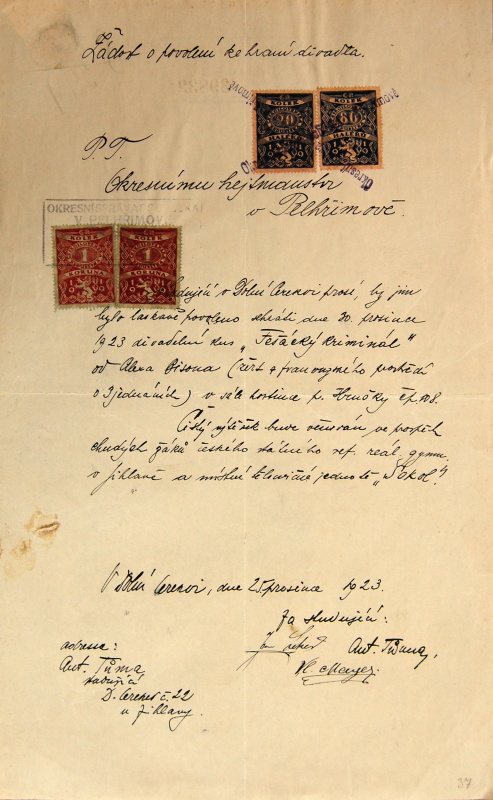 Žádost o povolení ke hraní divadla.
P. T.
Okresnímu hejtmanství
v Pelhřimově.
OKRESNÍ
V PELHŘIMOV
ČR
KOLEK
20
HALÉŘŮ
1919
ČR
KOLEK
60
HALÉŘŮ
1919
Okresní
KOLEK
1
KORUNA
KOLEK
1
KORUNA
v Dolní Cerekvi prosí, by jim
bylo laskavě povoleno sehráti dne 30. prosince
1923 divadelní kus „Fešácký kriminál"
od Alexa Bisona (žert z francouzského prostředí
o 3 jednáních) v sále hostince p. Hrušky čp. 108.
Čistý výtěžek bude věnován ve prospěch
chudých žáků českého státního ref. reál. gymn.
v Jihlavě a místní tělocvičné jednotě „Sokol."
V Dolní Cerekvi, dne 25. prosince 1923.
Za studující:
Ant. Tůma,
Mayer
adresa:
Ant. Tůma
studující
D. Cerekev č. 22
u Jihlavy.
37